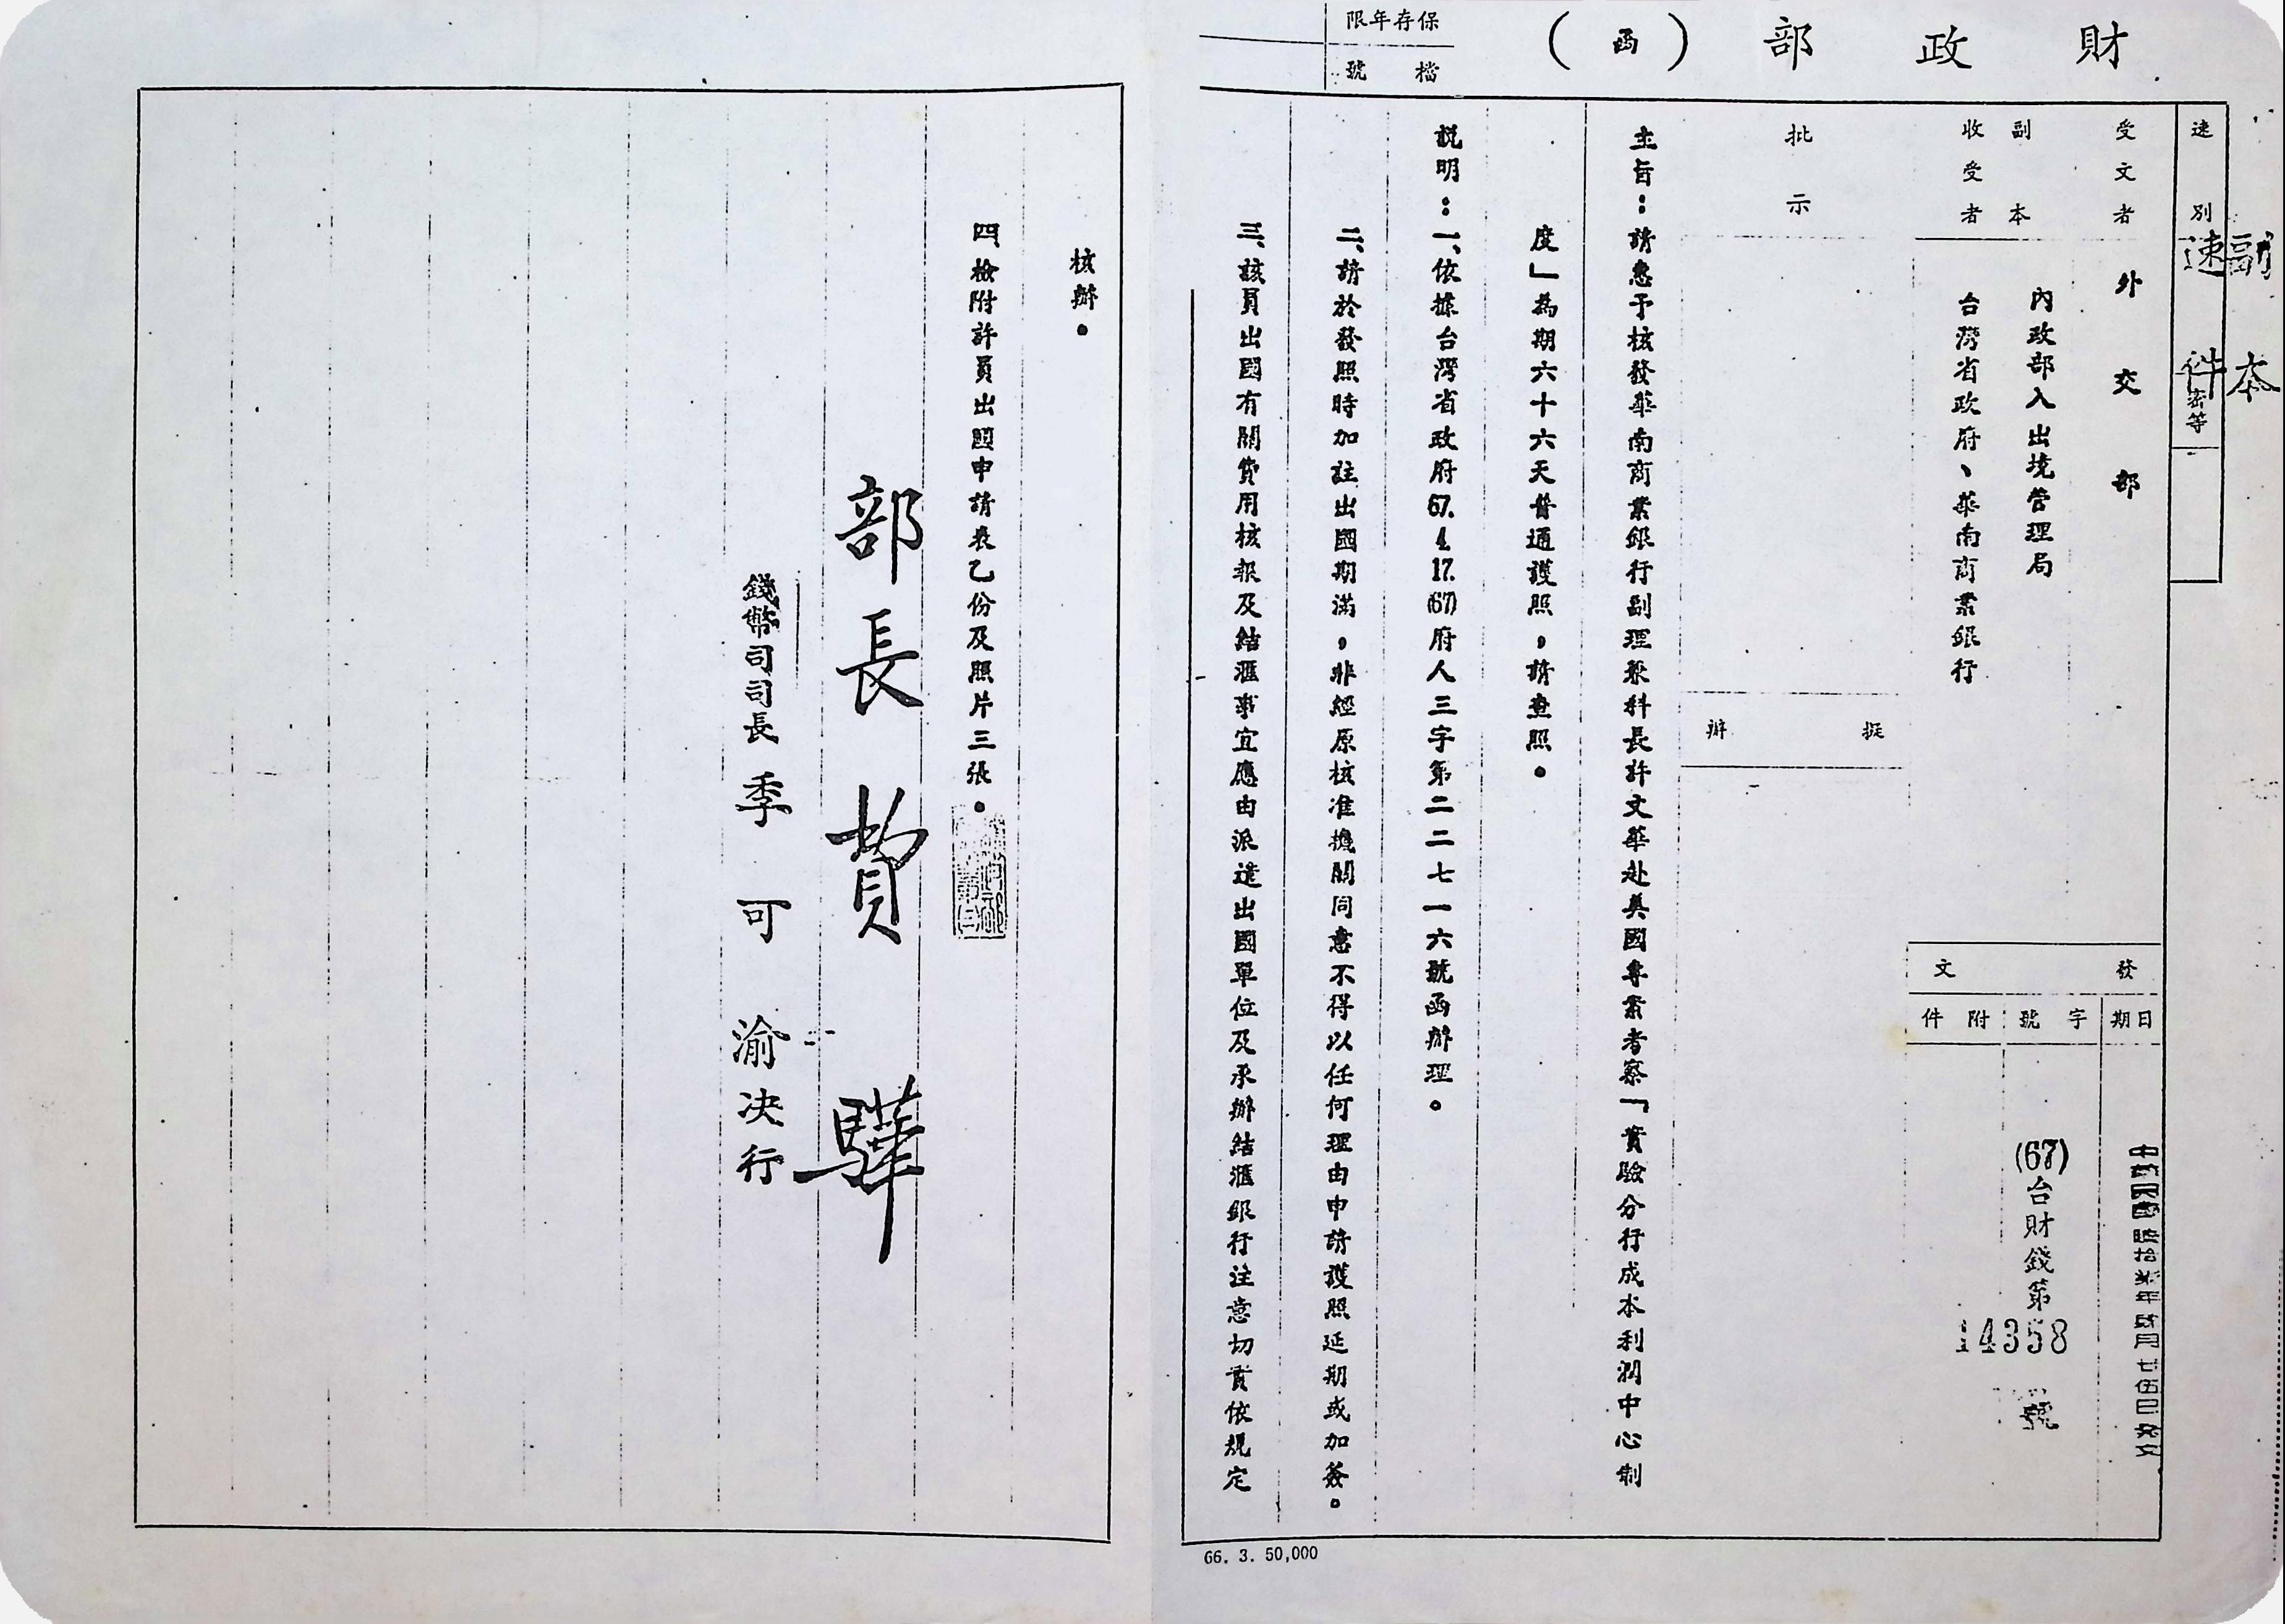 財政部（函）
保存年限
檔號
副本
速別
速件
密等
受文者
外交部
副本
收受者
內政部入出境管理局
台灣省政府、華南商業銀行
發文
日期
字號
附件
中華民國陸拾柒年肆月廿伍日發文
(67)台財錢第
14358
號
批示
擬辦
主旨：請惠予核發華南商業銀行副理兼科長許文華赴美國專案考察「實驗分行成本利潤中心制
度」為期六十六天普通護照，請查照。
說明：一、依據台灣省政府67.4.17.(67)府人三字第二二七一六號函辦理。
二、請於發照時加註出國期滿，非經原核准機關同意不得以任何理由申請護照延期或加簽。
三、該員出國有關費用核報及結滙事宜應由派遣出國單位及承辦結滙銀行注意切實依規定
66. 3. 50,000
核辦。
四、檢附許員出國申請表乙份及照片三張。
部長費驊
錢幣司司長季可渝決行